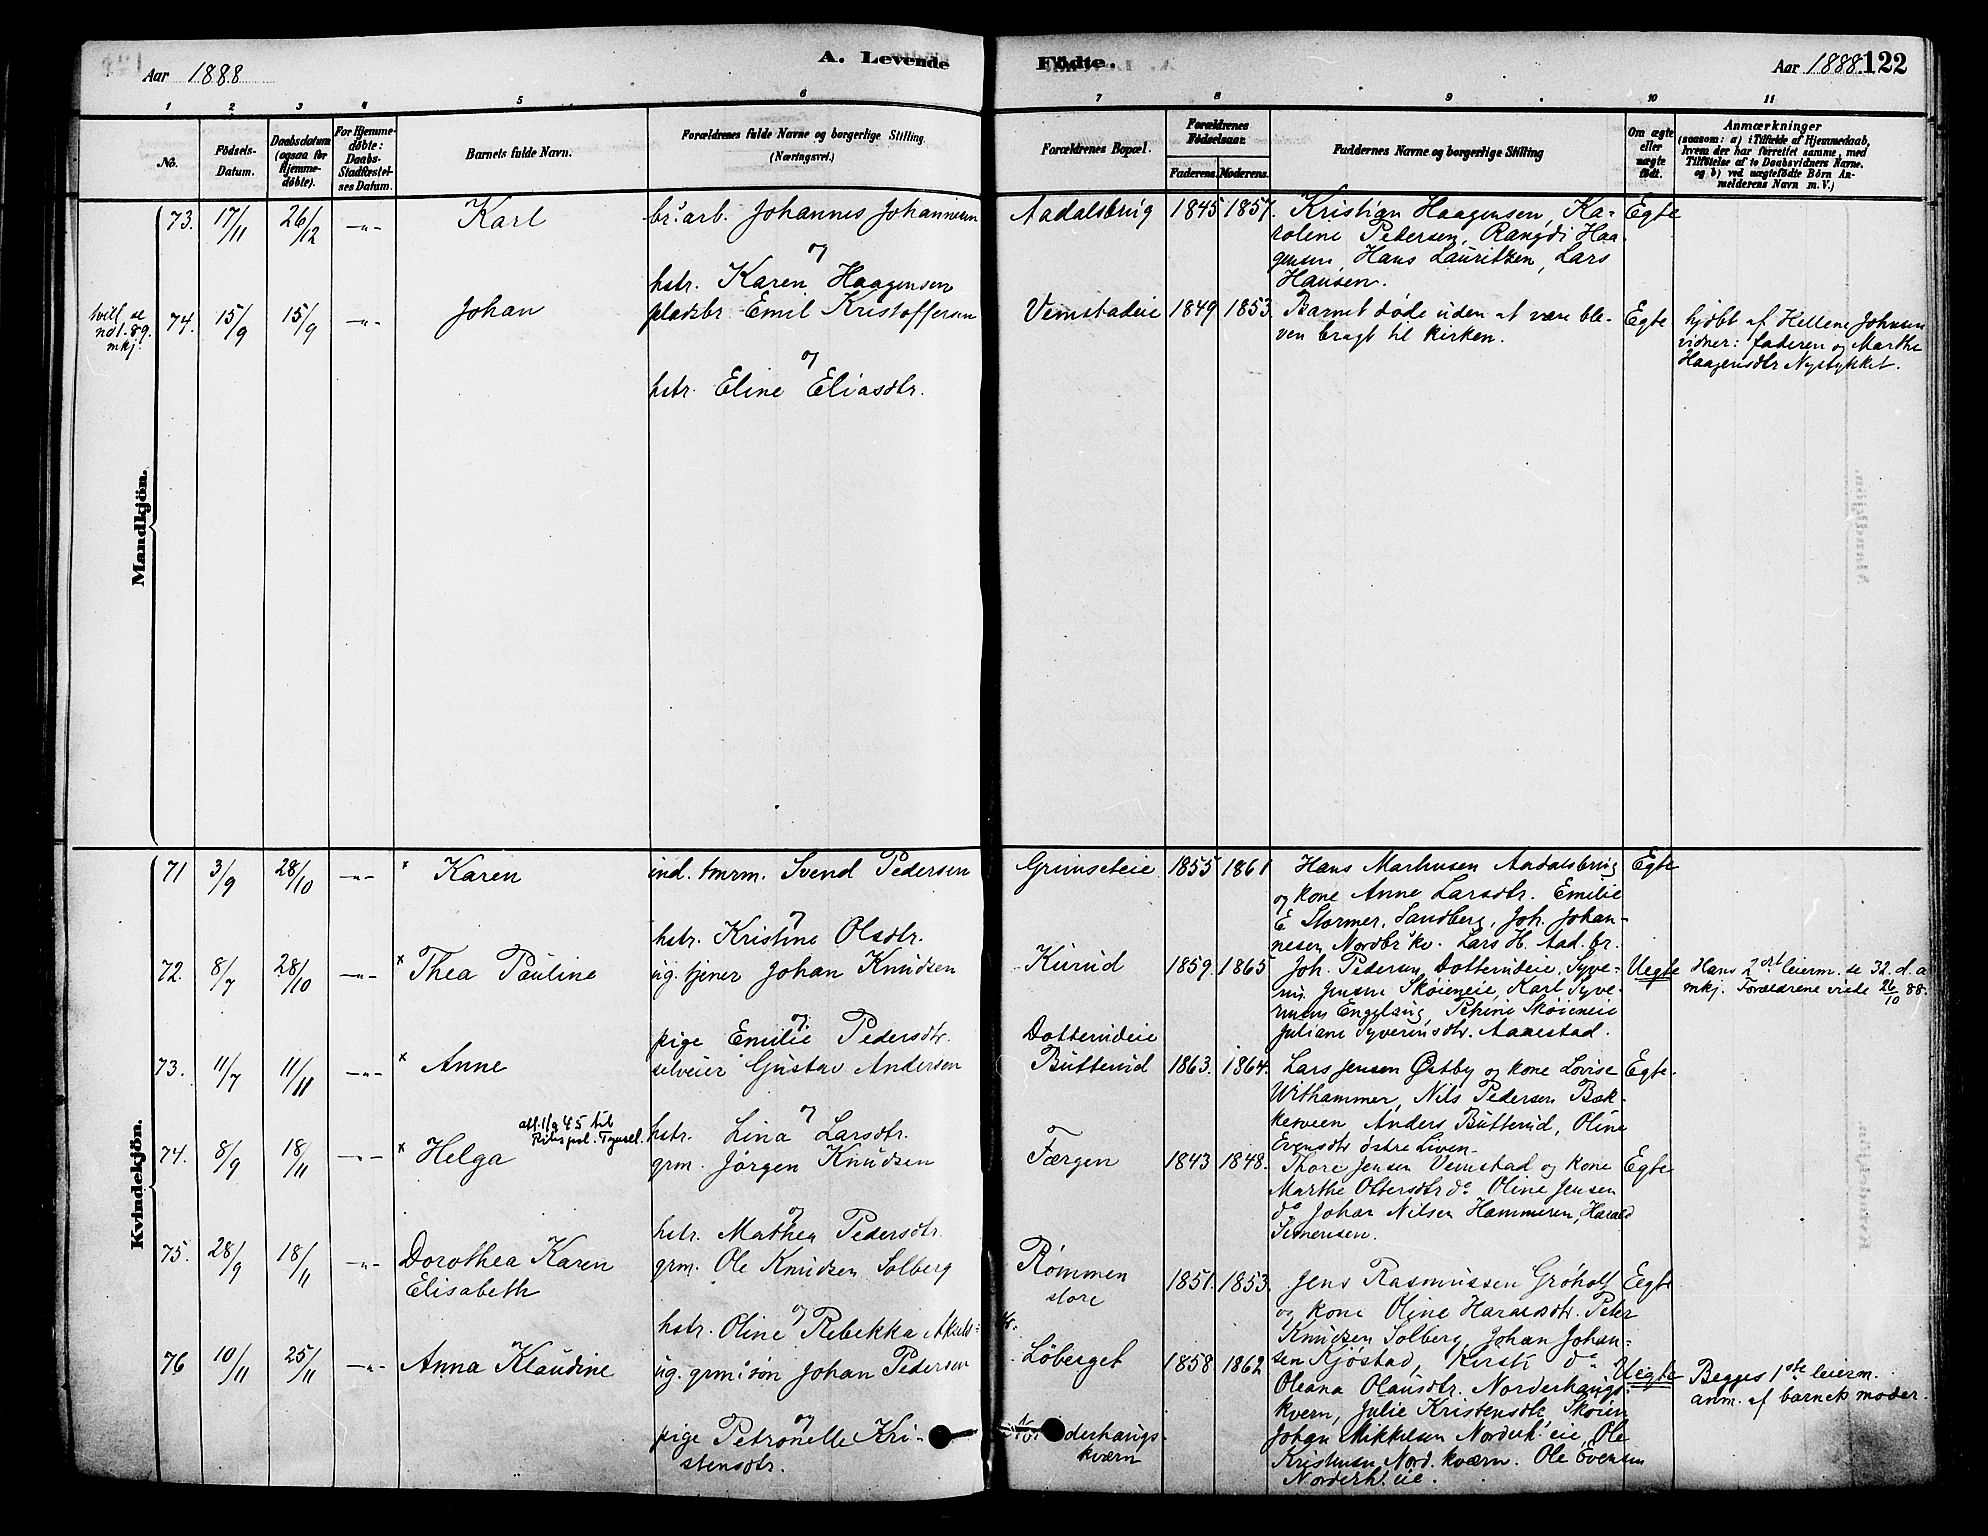 Aar 1888
A. Levende
Födte.
Aar 1888 122
1 2 3 4 5 6 7 8 9 10 11
No.
Födsels-
Datum.
Daabsdatum
(ogsaa for
Hjemme-
döbte).
For Hjemme-
döbte:
Daabs-
Stadfæstel-
ses Datum.
Barnets fulde Navn.
Forældrenes fulde Navne og borgerlige Stilling.
(Næringsvei.)
Forældrenes Bopæl.
Forældrenes
Födselsaar.
Faderens. Moderens.
Faddernes Navne og borgerlige Stilling
Om ægte
eller
uægte
födt.
Anmærkninger
(saasom: a) i Tilfælde af Hjemmedaab,
hvem der har forrettet samme, med
Tilföielse af to Daabsvidners Navne,
og b) ved uægtefödte Börn An-
melderens Navn m. V.)
Mandkjön.
73. 17/11 26/12 -"- Karl
br.arb. Johannes Johannesen
og
hstr. Karen Haagensen
Aadalsbrug 1845 1857.
Kristian Haagensen, Ka-
rolene Pedersen, Rangdi Haa-
gensen Hans Lauritzen, Lars
Hansen.
Egte
tvill. se
nol. 89.
mkj.
74. 15/9 15/9 -"- Johan
pladsbr. Emil Kristoffersen
og
hstr. Eline Eliasdtr.
Vemstadeie 1849 1853.
Barnet døde uden at være ble-
ven bragt til kirken.
Egte
hjdbt af Hellene Johnsen
vidner: faderen og Marthe
Haagensdtr Nystykket.
Kvindekjön.
71 3/9 28/10 -"- Karen
ind. tmrm. Svend Pedersen
og
hstr. Kristine Olsdtr.
Grimseteie 1855 1861
Hans Marhusen Aadalsbrug
og kone Anne Larsdtr. Emilie
E Stormer, Sandberg, Joh. Johan-
nesen Nordbr. kv. Lars H. Aad. br.
Egte
72. 8/7 28/10 -"- Thea Pauline
ug. tjener Johan Knudsen
og
pige Emilie Pedersdtr.
Kurud
Dotterudeie
1859. 1865
Joh. Pedersen Dotterudeie, Syve-
rin Jensen Skøieneie, Karl Syve-
rinsen Engelaug, Petrine Skøieneie
Juliane Syverinsdtr. Aarestad.
Uegte
Hans 2det leierm. se 32. d. a.
mkj. Forældrene viede 26/10 88.
73. 11/7 11/11 -"- Anne
selveier Gustav Andersen
og
hstr. Lina Larsdtr.
Butterud 1863. 1864.
Lars Jensen Østby og kone Lovise
Withammer, Nils Pedersen Bak-
keveen Anders Butterud, Oline
Evensdtr østre Liven.
Egte.
74. 8/9 18/11 -"- Helga
att. 1/9 45 til
grm. Jørgen Knudsen
og
hstr. Mathea Pedersdtr.
Færgen 1843 1848.
Thore Jensen Vemstad og kone
Marthe Ottersdtr do. Oline Jensen
do, Johan Nilsen Hammeren, Harald
Simensen.
Egte
75. 28/9 18/11 -"- Dorothea Karen
Elisabeth
grm. Ole Knudsen Solberg
og
hstr. Oline Rebekka Aksels-
Rømmen
store
1851. 1853.
Jens Rasmussen Grøholt
og kone Oline Haraldsdtr. Peter
Knudsen Solberg, Johan Johan-
sen Kjøstad, Kirsti do.
Egte
76 10/11 25/11 -"- Anna Klaudine
ug. grm.søn Johan Pedersen
og
pige Petronelle Kri-
stensdtr.
Løberget
Norderhaugs-
kværn
1858 1862
Oleana Olausdtr. Norderhaugs-
kvern, Julie Kristensdtr. Skøien
Johan Mikkelsen Norderh. eie, Ole
Kristensen Nord. kværn. Ole Evensen
Norderh. eie.
Uegte
Begges 1ste leierm.
anm. af barnets moder.